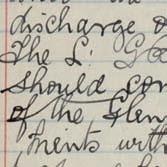 discharge &
The L. G
should con
of the Glen
ments with